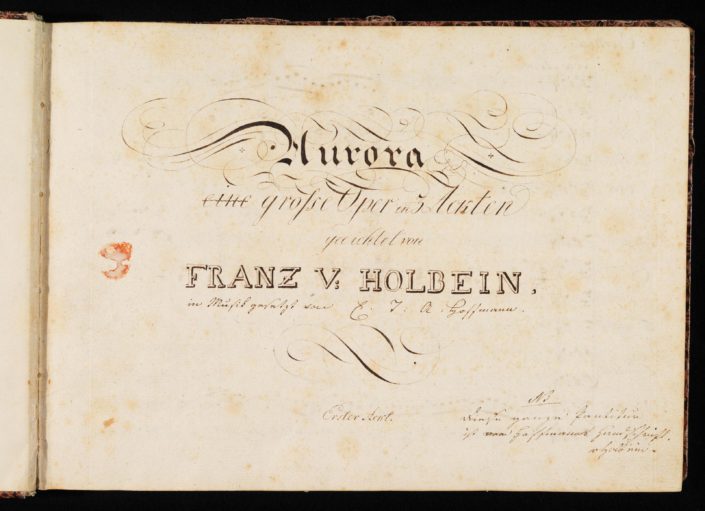 Aurora
eine große Oper in 3 Ackten
gedichtet von
FRANZ V: HOLBEIN.
in Musik gesetzt von E: T: A: Hoffmann.
Erster Ackt.
NB
Diese ganze Partitur
ist von Hoffmanns Handschrift.
vHolbein.